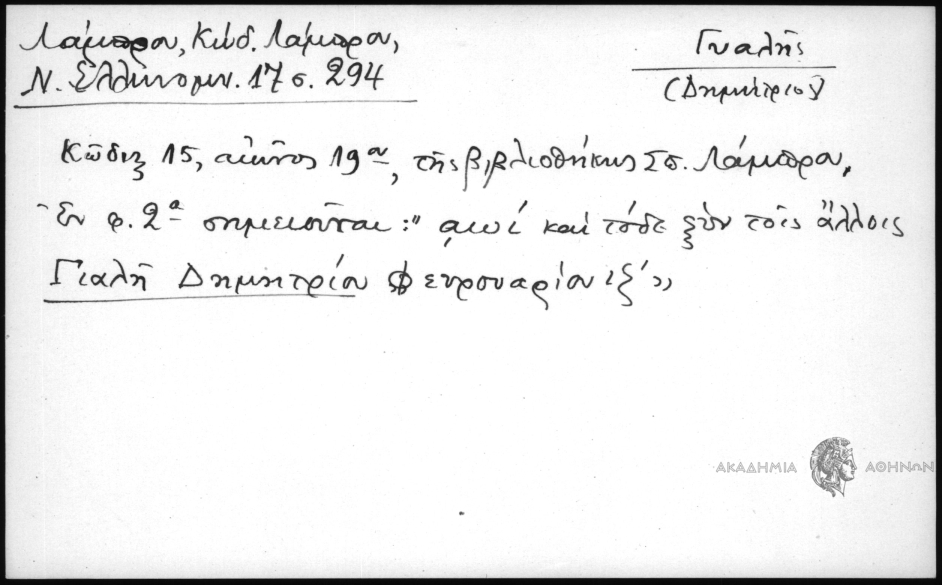 Λάμπρου, Κώδ. Λάμπρου,
Ν. Ἑλληνομν. 17 σ. 294
Γυαλῆς
(Δημήτριος)
Κῶδιξ 15, αἰῶνος 19ου, τῆς βιβλιοθήκης Σπ. Λάμπρου,
Ἐν φ. 2α σημειοῦται: " καὶ τόδε ξὺν τοῖς ἄλλοις
Γιαλῆ Δημητρίου Φευρουαρίου ιξ´»
ΑΚΑΔΗΜΙΑ ΑΘΗΝΩΝ